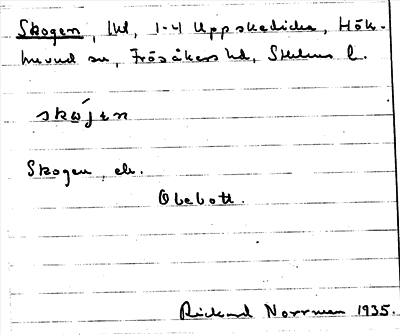 Skogen, lht, 1-4 Uppskedicka, Hök-
huvud sn, Frösåkers hd, Sthlms l.
skǿjɛn
Skogen, eb.
Obebott.
Rickard Norrman 1935.